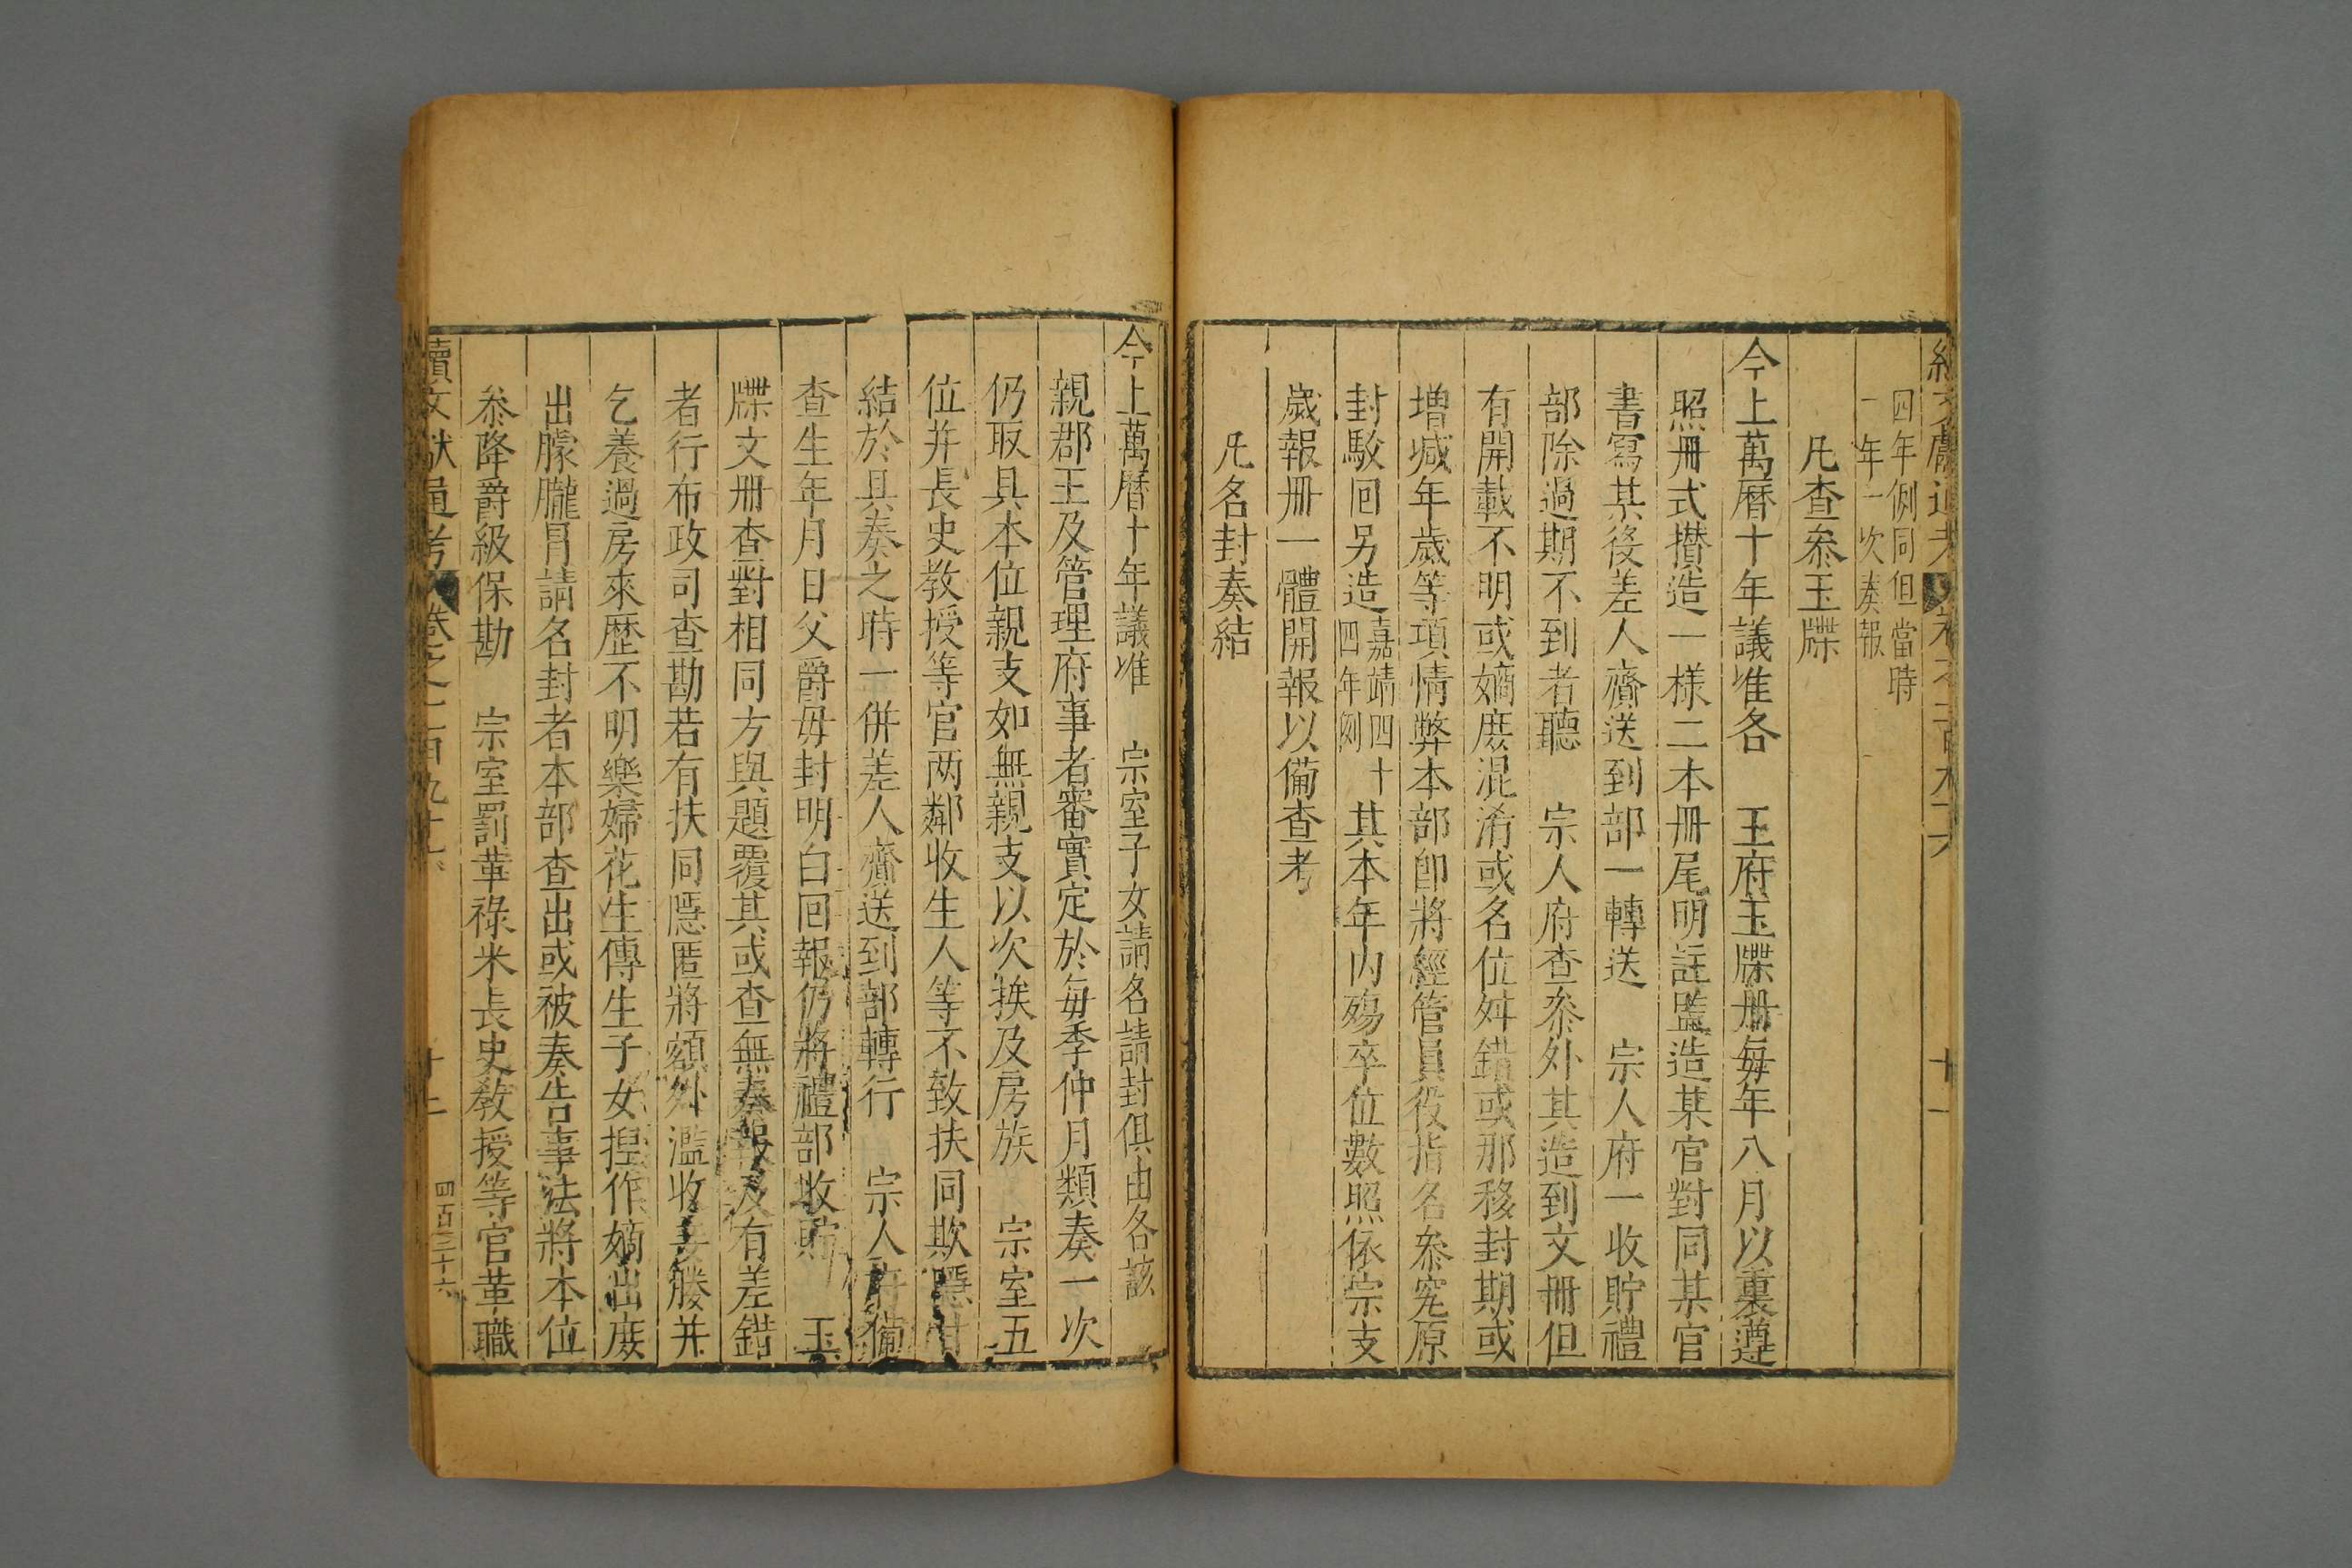 四年例同但當時
一年一次奏報
凡查叅玉牒
今上萬曆十年議准各　王府玉牒册每年八月以裏遵
照册式攅造一樣二本册尾明註監造某官對同某官
書寫某後差人齎送到部一轉送　宗人府一收貯禮
部除過期不到者聽　宗人府查叅外其造到文册但
有開載不明或嫡庶混淆或名位舛錯或那移封期或
增減年歲等項情弊本部卽將經管員役指名叅究原
封駁囘另造嘉靖四十四年例其本年内殤卒位數照依宗支
歲報册一體開報以備查考
凡名封奏結
今上萬曆十年議准　宗室子女請名請封俱由各該
親郡王及管理府事者審實定於每季仲月類奏一次
仍取具本位親支如無親支以次挨及房族　宗室五
位并長史教授等官两鄰收生人等不致扶同欺隱甘
結於具奏之時一併差人齎送到部轉行　宗人府備
查生年月日父爵毋封明白囘報仍將禮部收貯　玉
牒文册查對相同方與題覆其或查無奏報及有差錯
者行布政司查勘若有扶同隱匿將額外濫收妾媵并
乞養過房來歷不明樂婦花生傳生子女揑作嫡出庶
出朦朧冒請名封者本部查出或被奏告事法將本位
叅降爵級保勘　宗室罰革祿米長史教授等官革職
續文獻通考　卷之二百九十　十二　四百三十六